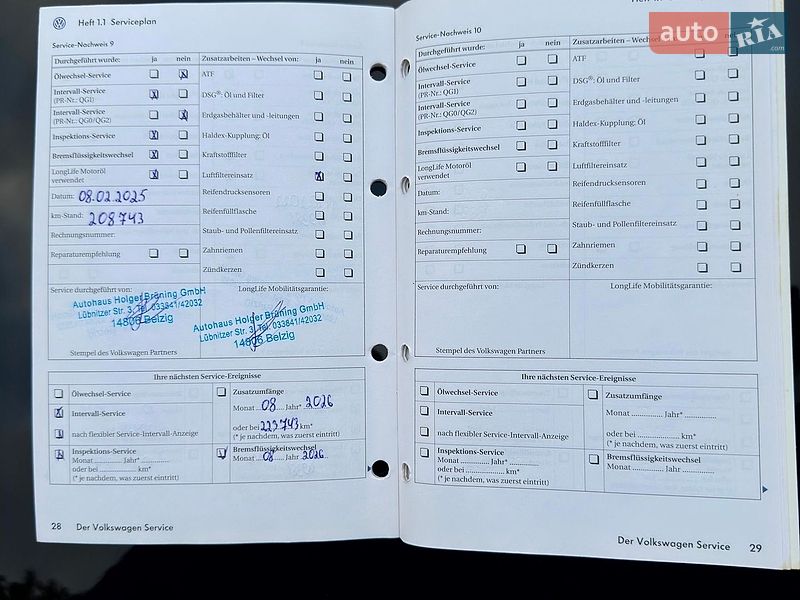 Heft 1.1 Serviceplan
Service-Nachweis 9
Durchgeführt wurde: ja nein
Ölwechsel-Service
Intervall-Service
(PR-Nr.: QG1)
Intervall-Service
(PR-Nr.: QG0/QG2)
Inspektions-Service
Bremsflüssigkeitswechsel
LongLife Motoröl
verwendet
Datum: 08.02.2025
km-Stand: 208743
Rechnungsnummer:
Reparaturempfehlung
Zusatzarbeiten – Wechsel von: ja nein
ATF
DSG®: Öl und Filter
Erdgasbehälter und -leitungen
Haldex-Kupplung: Öl
Kraftstofffilter
Luftfiltereinsatz
Reifendrucksensoren
Reifenfüllflasche
Staub- und Pollenfiltereinsatz
Zahnriemen
Zündkerzen
Service durchgeführt von:
Autohaus Holger Brüning GmbH
Lübnitzer Str. 3, Tel. 033841/42032
14806 Belzig
Stempel des Volkswagen Partners
LongLife Mobilitätsgarantie:
Autohaus Holger Brüning GmbH
Lübnitzer Str. 3, Tel. 033841/42032
14806 Belzig
Ihre nächsten Service-Ereignisse
Ölwechsel-Service
Intervall-Service
nach flexibler Service-Intervall-Anzeige
Inspektions-Service
Monat Jahr*
oder bei km*
(* je nachdem, was zuerst eintritt)
Zusatzumfänge
Monat 08 Jahr* 2026
oder bei 223743 km*
(* je nachdem, was zuerst eintritt)
Bremsflüssigkeitswechsel
Monat 08 Jahr 2026
28 Der Volkswagen Service
Service-Nachweis 10
Durchgeführt wurde: ja nein
Ölwechsel-Service
Intervall-Service
(PR-Nr.: QG1)
Intervall-Service
(PR-Nr.: QG0/QG2)
Inspektions-Service
Bremsflüssigkeitswechsel
LongLife Motoröl
verwendet
Datum:
km-Stand:
Rechnungsnummer:
Reparaturempfehlung
Zusatzarbeiten – Wechsel
ATF
DSG®: Öl und Filter
Erdgasbehälter und -leitungen
Haldex-Kupplung: Öl
Kraftstofffilter
Luftfiltereinsatz
Reifendrucksensoren
Reifenfüllflasche
Staub- und Pollenfiltereinsatz
Zahnriemen
Zündkerzen
Service durchgeführt von:
Stempel des Volkswagen Partners
LongLife Mobilitätsgarantie:
Ihre nächsten Service-Ereignisse
Ölwechsel-Service
Intervall-Service
nach flexibler Service-Intervall-Anzeige
Inspektions-Service
Monat Jahr*
oder bei km*
(* je nachdem, was zuerst eintritt)
Zusatzumfänge
Monat Jahr*
oder bei km*
(* je nachdem, was zuerst eintritt)
Bremsflüssigkeitswechsel
Monat Jahr
Der Volkswagen Service 29
auto RIA .com